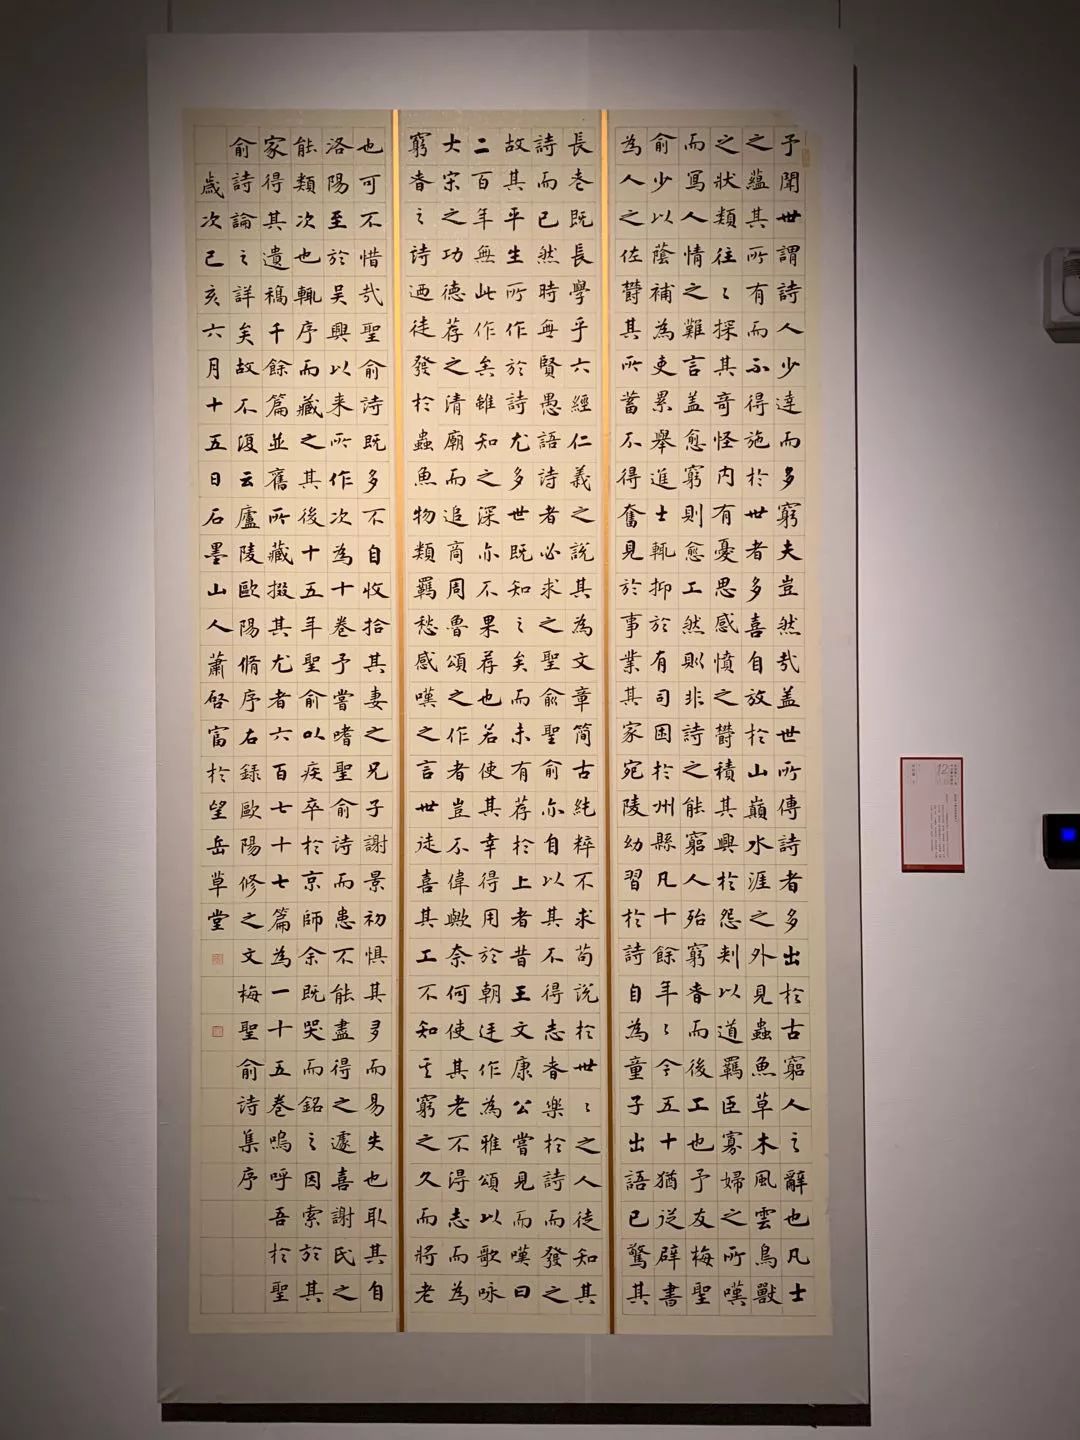 予聞世謂詩人少達而多窮夫豈然哉蓋世所傳詩者多出於古窮人之辭也凡士
之蘊其所有而不得施於世者多喜自放於山巔水涯之外見蟲魚草木風雲鳥獸
之狀類往〻探其奇怪內有憂思感憤之鬱積其興於怨刺以道羈臣寡婦之所嘆
而寫人情之難言蓋愈窮則愈工然則非詩之能窮人殆窮者而後工也予友梅聖
俞少以蔭補為吏累舉進士輒抑於有司困於州縣凡十餘年〻今五十猶從辟書
為人之佐鬱其所蓄不得奮見於事業其家宛陵幼習於詩自為童子出語已驚其
長老既長學乎六經仁義之說其為文章簡古純粹不求苟說於世〻之人徒知其
詩而已然時無賢愚語詩者必求之聖俞聖俞亦自以其不得志者樂於詩而發之
故其平生所作於詩尤多世既知之矣而未有荐於上者昔王文康公嘗見而嘆曰
二百年無此作矣雖知之深亦不果荐也若使其幸得用於朝廷作為雅頌以歌咏
大宋之功德荐之清廟而追商周魯頌之作者豈不偉歟奈何使其老不得志而為
窮者之詩迺徒發於蟲魚物類羈愁感嘆之言世徒喜其工不知其窮之久而將老
也可不惜哉聖俞詩既多不自收拾其妻之兄子謝景初懼其多而易失也取其自
洛陽至於吳興以來所作次為十卷予嘗嗜聖俞詩而患不能盡得之遽喜謝氏之
能類次也輒序而藏之其後十五年聖俞以疾卒於京師余既哭而銘之因索於其
家得其遺稿千餘篇並舊所藏掇其尤者六百七十七篇為一十五卷嗚呼吾於聖
俞詩論之詳矣故不復云廬陵歐陽脩序右錄歐陽修之文梅聖俞詩集序
歲次己亥六月十五日石墨山人蕭啓富於望岳草堂
12